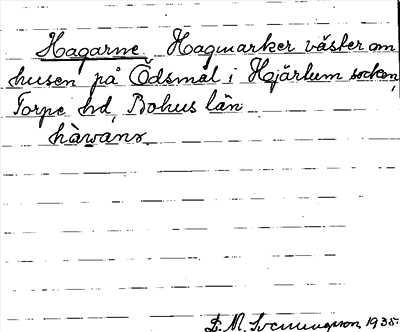 Hagarne Hagmarker väster om
husen på Ödsmål i Hjärtum socken,
Torpe hd, Bohus län
hàwanr
1935.